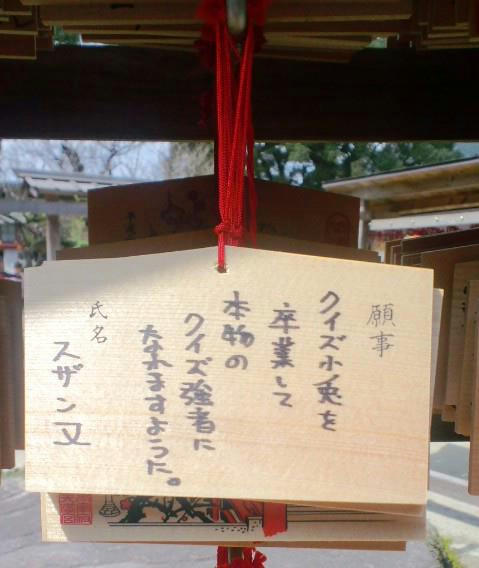 願事
クイズ小兎を
卒業して
本物の
クイズ強者に
なれますように。
氏名
スザン又